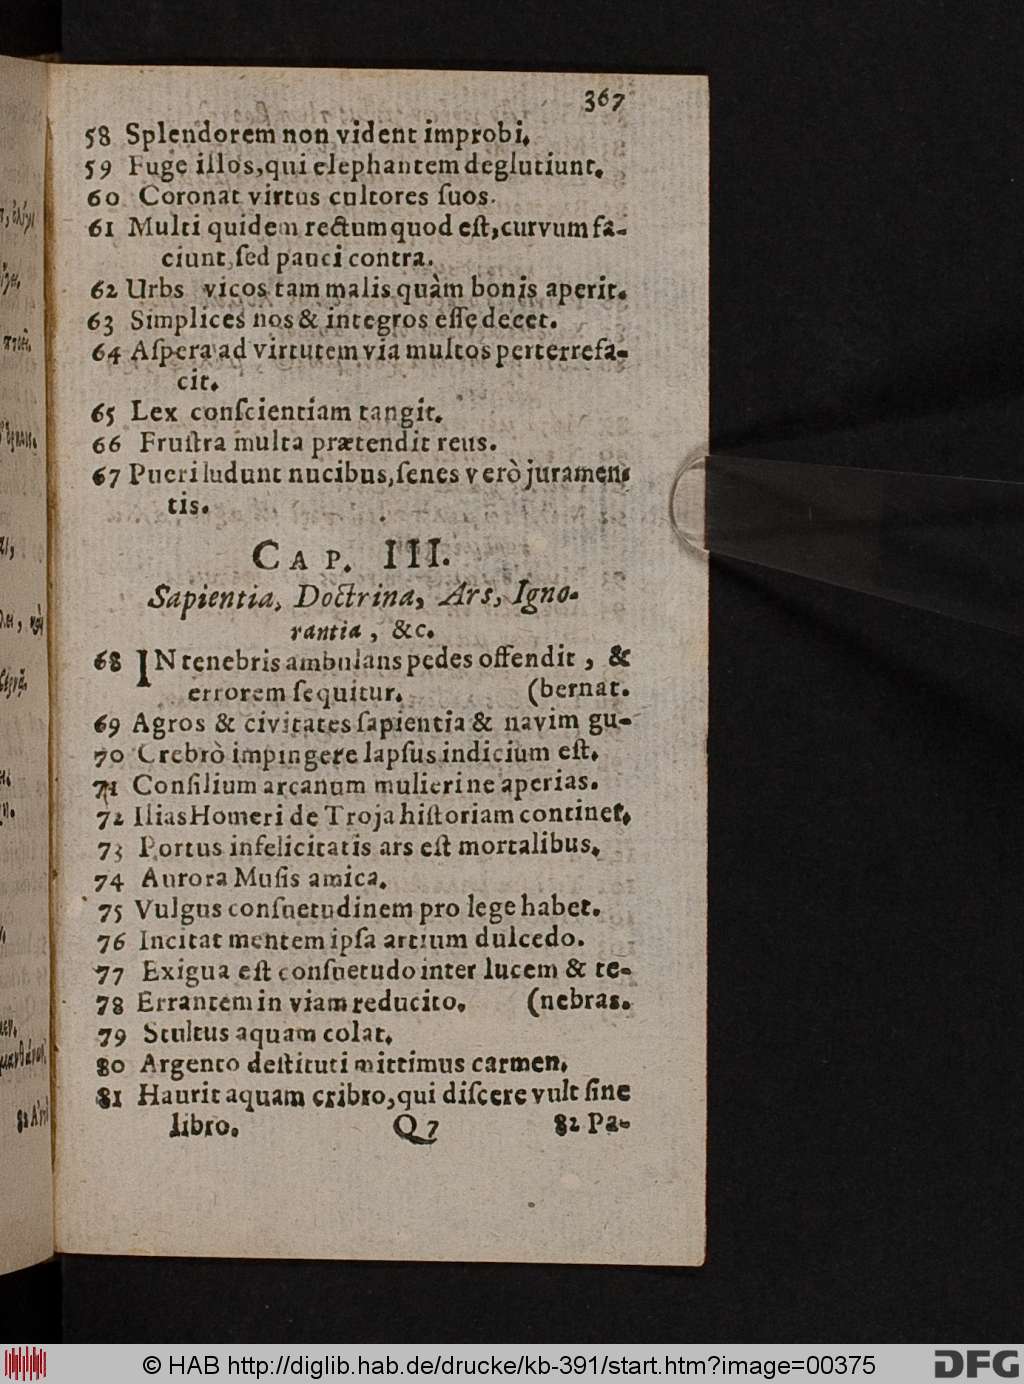 367
58 Splendorem non vident improbi.
59 Fuge illos, qui elephantem deglutiunt.
60 Coronat virtus cultores ſuos.
61 Multi quidem rectum quod eſt, curvum fa-
ciunt, ſed pauci contra.
62 Urbs vicos tam malis quàm bonis aperit.
63 Simplices nos & integros eſſe decet.
64 Aſpera ad virtutem via multos perterrefa-
cit.
65 Lex conſcientiam tangit.
66 Fruſtra multa prætendit reus.
67 Pueri ludunt nucibus, ſenes verò juramen-
tis.
CAP. III.
Sapientia, Doctrina, Ars, Igno-
rantia, &c.
68 IN tenebris ambulans pedes offendit, &
errorem ſequitur. (bernat.
69 Agros & civitates ſapientia & navim gu-
70 Crebrò impingere lapſus indicium eſt.
71 Conſilium arcanum mulieri ne aperias.
72 Ilias Homeri de Troja hiſtoriam continet.
73 Portus infelicitatis ars eſt mortalibus.
74 Aurora Muſis amica.
75 Vulgus conſuetudinem pro lege habet.
76 Incitat mentem ipſa artium dulcedo.
77 Exigua eſt conſuetudo inter lucem & te-
78 Errantem in viam reducito. (nebras.
79 Stultus aquam colat.
80 Argento deſtituti mittimus carmen.
81 Haurit aquam cribro, qui diſcere vult ſine
libro. Q 7 82 Pa-
© HAB http://diglib.hab.de/drucke/kb-391/start.htm?image=00375
DFG